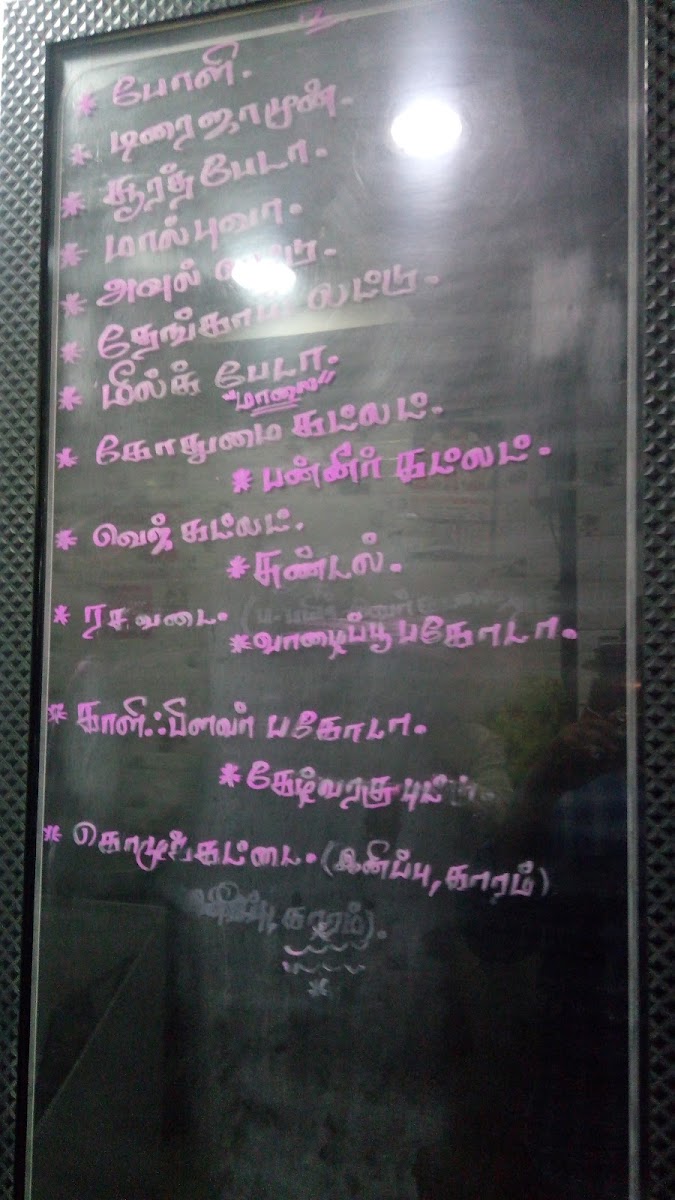 * போளி.
* டிரைஜாமுன்.
* சூரத் பேடா.
* மால்புவா.
* அவுல் லட்டு.
* தேங்காய் லட்டு.
* மில்க் பேடா.
"மாலை"
* கோதுமை கட்லட்.
* பன்னீர் கட்லட்.
* வெஜ் கட்லட்.
* சுண்டல்.
* ரசவடை.
* வாழைப்பூ பகோடா.
* காலிஃபிளவர் பகோடா.
* கேழ்வரகு புட்டு.
* கொழுக்கட்டை. (இனிப்பு, காரம்)
காரம்).